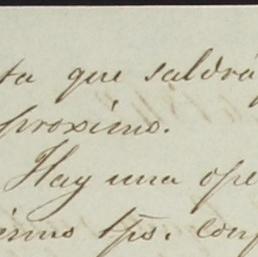 ta que saldrá
proximo.
Hay una ope
tps. con